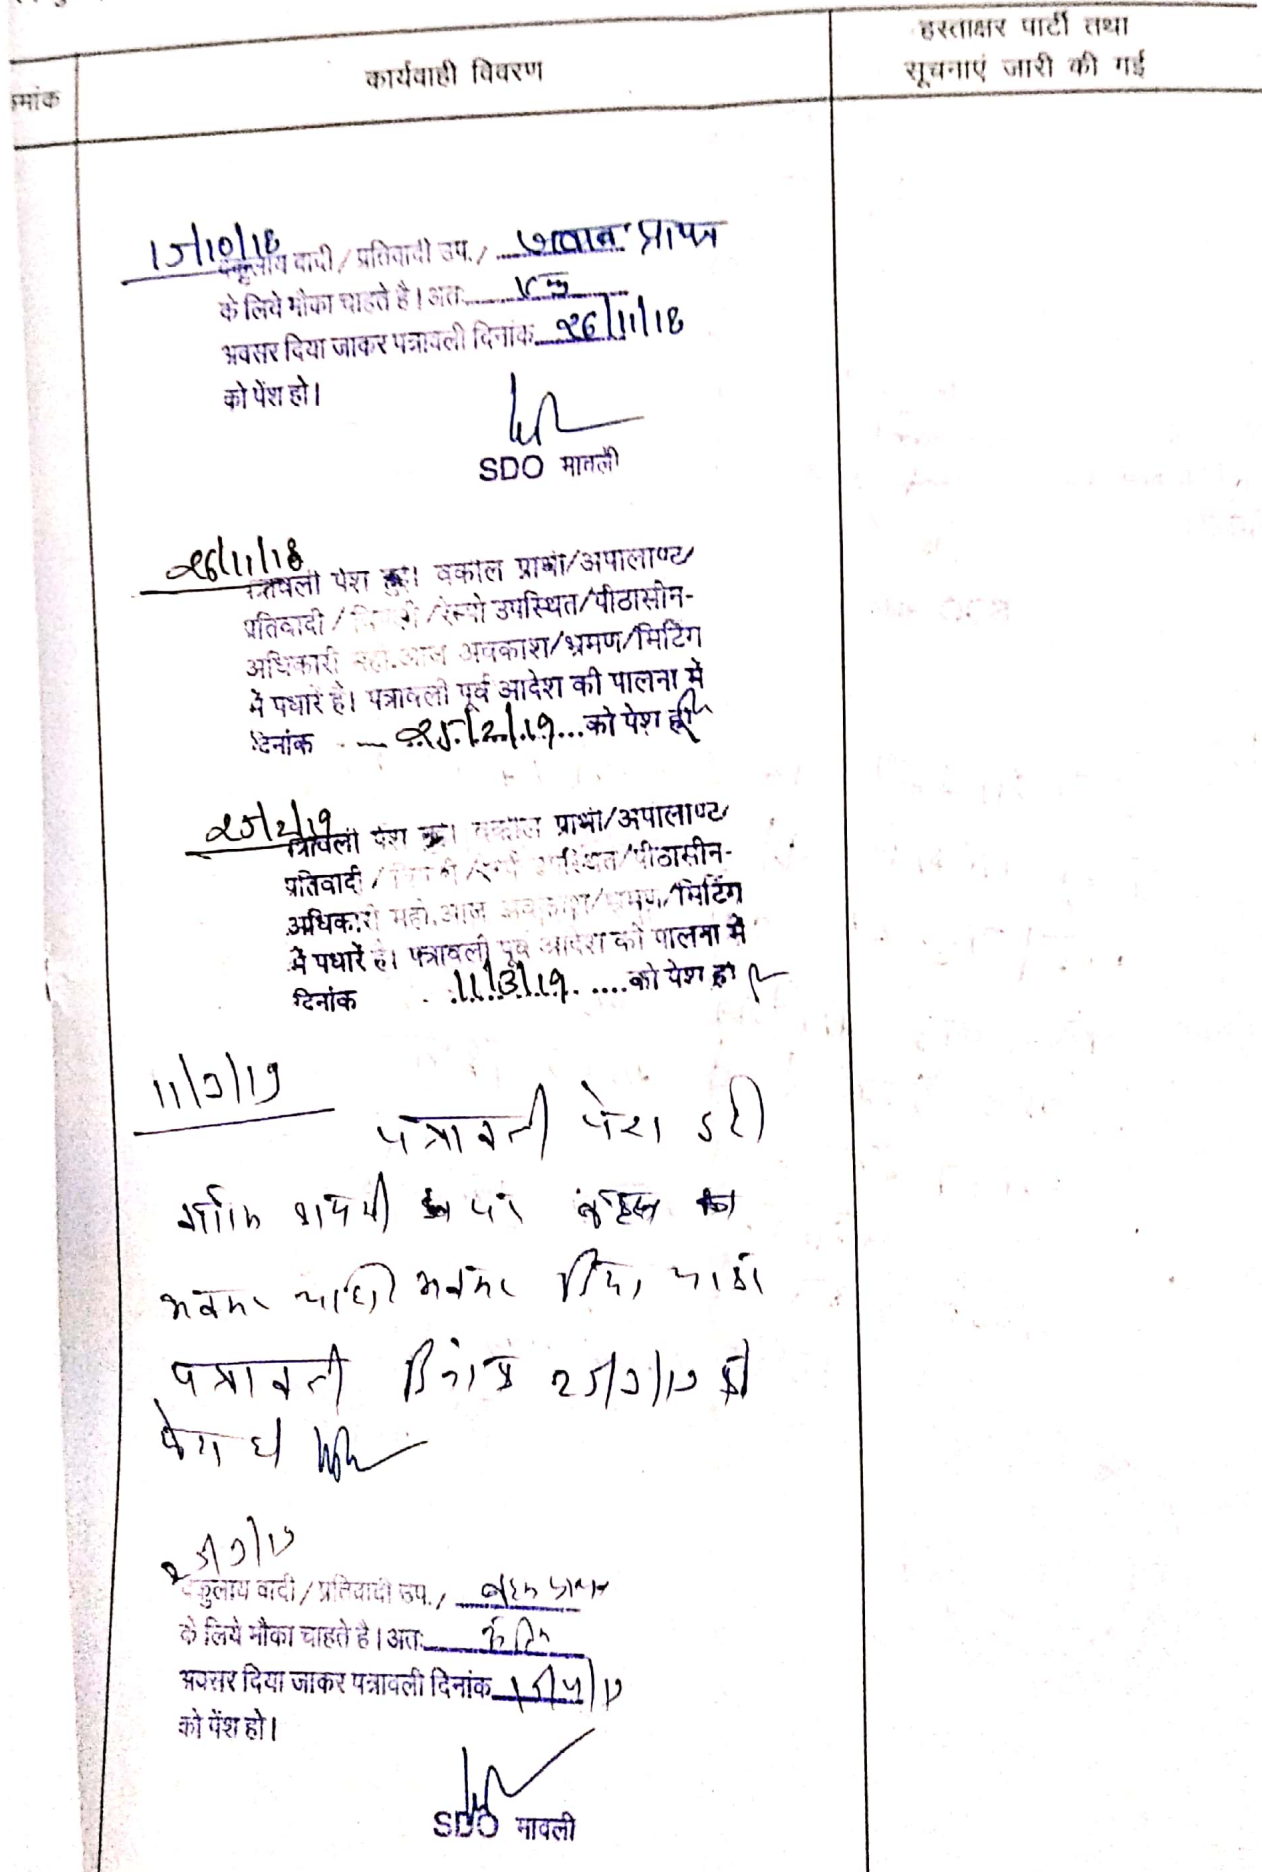 हस्ताक्षर पार्टी तथा
कार्यवाही विवरण
सूचनाएं जारी की गई
मांक
15/10/18
वकूलाय वादी / प्रतिवादी उप. /
के लिये मौका चाहते है। अतः
अवसर दिया जाकर पत्रावली दिनांक 26/11/18
को पेंश हो।
SDO मावली
26/11/18
पत्रावली पेश हुई। वकील प्रार्थी/अपीलाण्ट/
प्रतिवादी / /रेस्पो उपस्थित/पीठासीन-
अधिकारी महो.आज अवकाश/भ्रमण/मिटिंग
में पधारें है। पत्रावली पूर्व आदेश की पालना में
दिनांक 25/2/19 को पेश हो
25/2/19
पत्रावली पेश हुई। वकील प्रार्थी/अपीलाण्ट/
प्रतिवादी / उपस्थित/पीठासीन-
अधिकारी महो.आज अवकाश/भ्रमण/मिटिंग
में पधारें है। पत्रावली पूर्व आदेश की पालना में
दिनांक 11/3/19 को पेश हो
11/3/19
पत्रावली पेश हुई
बहस का
अवसर चाहा अवसर दिया
पत्रावली दिनांक 25/3/19 को
पेश हो
25/3/19
वकुलाय वादी / प्रतिवादी उप. / बहस
के लिये मौका चाहते है। अतः
अवसर दिया जाकर पत्रावली दिनांक
को पेंश हो।
SDO मावली